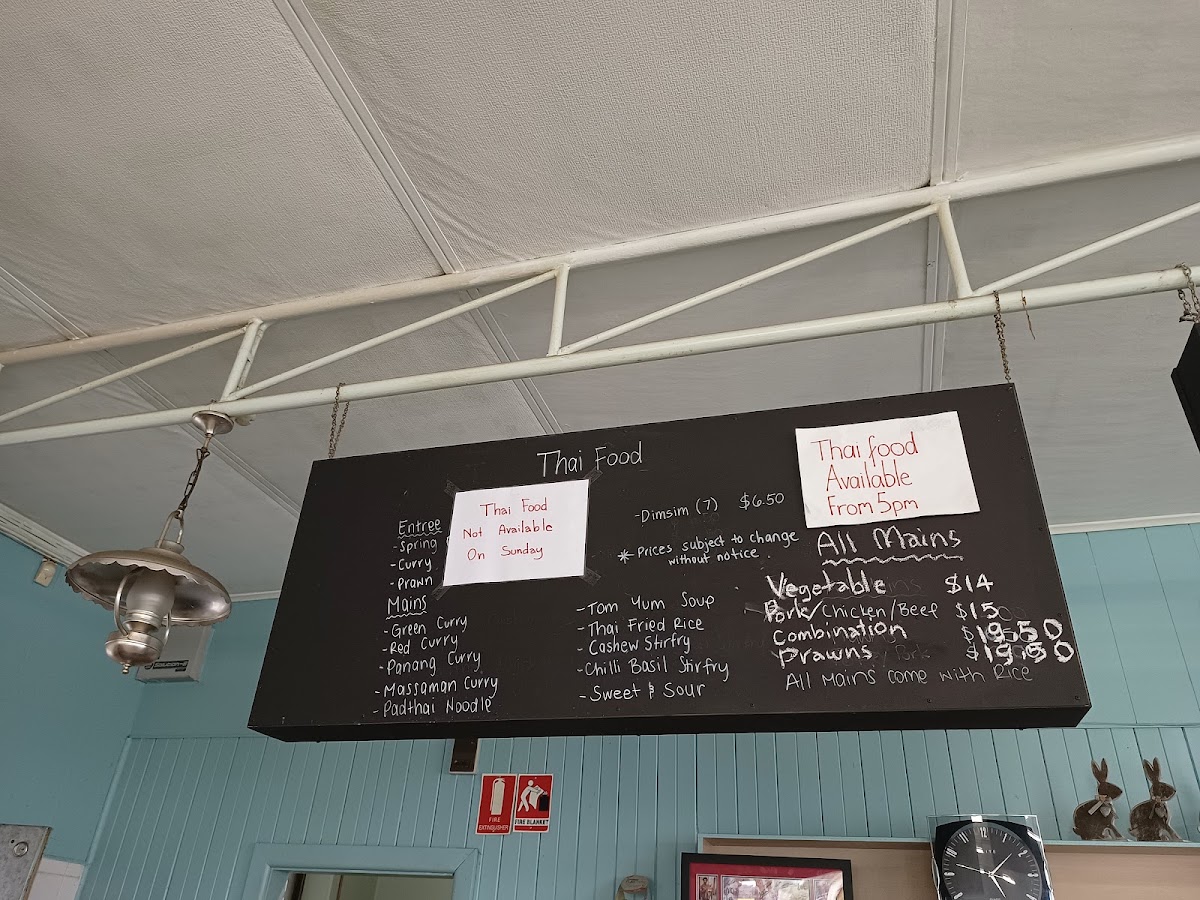 Thai Food
Entree
-Spring
-Curry
-Prawn
Thai Food
Not Available
On Sunday
-Dimsim (7) $6.50
* Prices subject to change
without notice.
Mains
-Green Curry
-Red Curry
-Panang Curry
-Massaman Curry
-Padthai Noodle
-Tom Yum Soup
-Thai Fried Rice
-Cashew Stirfry
-Chilli Basil Stirfry
-Sweet & Sour
Thai food
Available
From 5pm
All Mains
Vegetable $14
Pork/Chicken/Beef $15
Combination $19.50
Prawns $19.50
All Mains come with Rice
FIRE
EXTINGUISHER
FIRE BLANKET